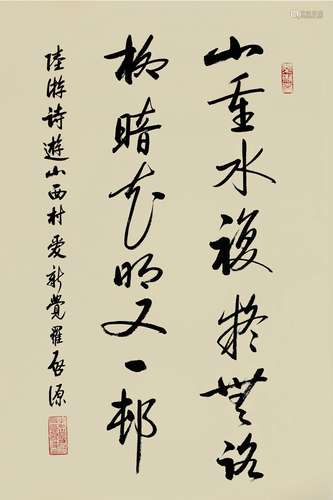 山重水複疑無路
柳暗花明又一邨
陸游詩遊山西村愛新覺羅啟源